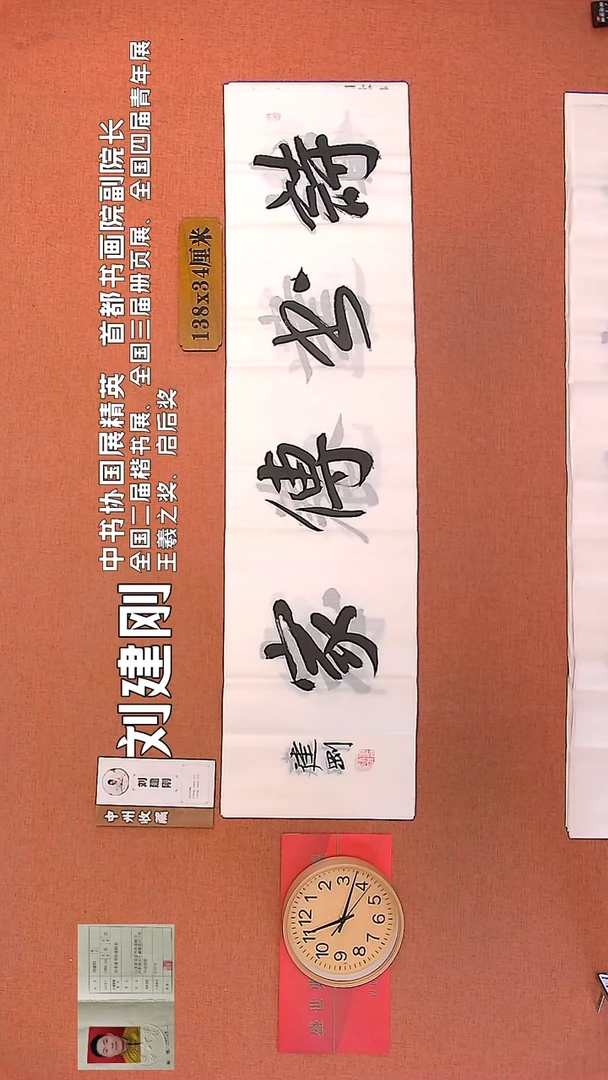 刘建刚
中书协国展精英 首都书画院副院长
全国二届楷书展、全国三届册页展、全国四届青年展
王羲之奖、启后奖
138x34厘米
詩书傳家
建剛
刘建刚
中州收藏
盛世
12 1 2 3 4 5 6 7 8 9 10 11